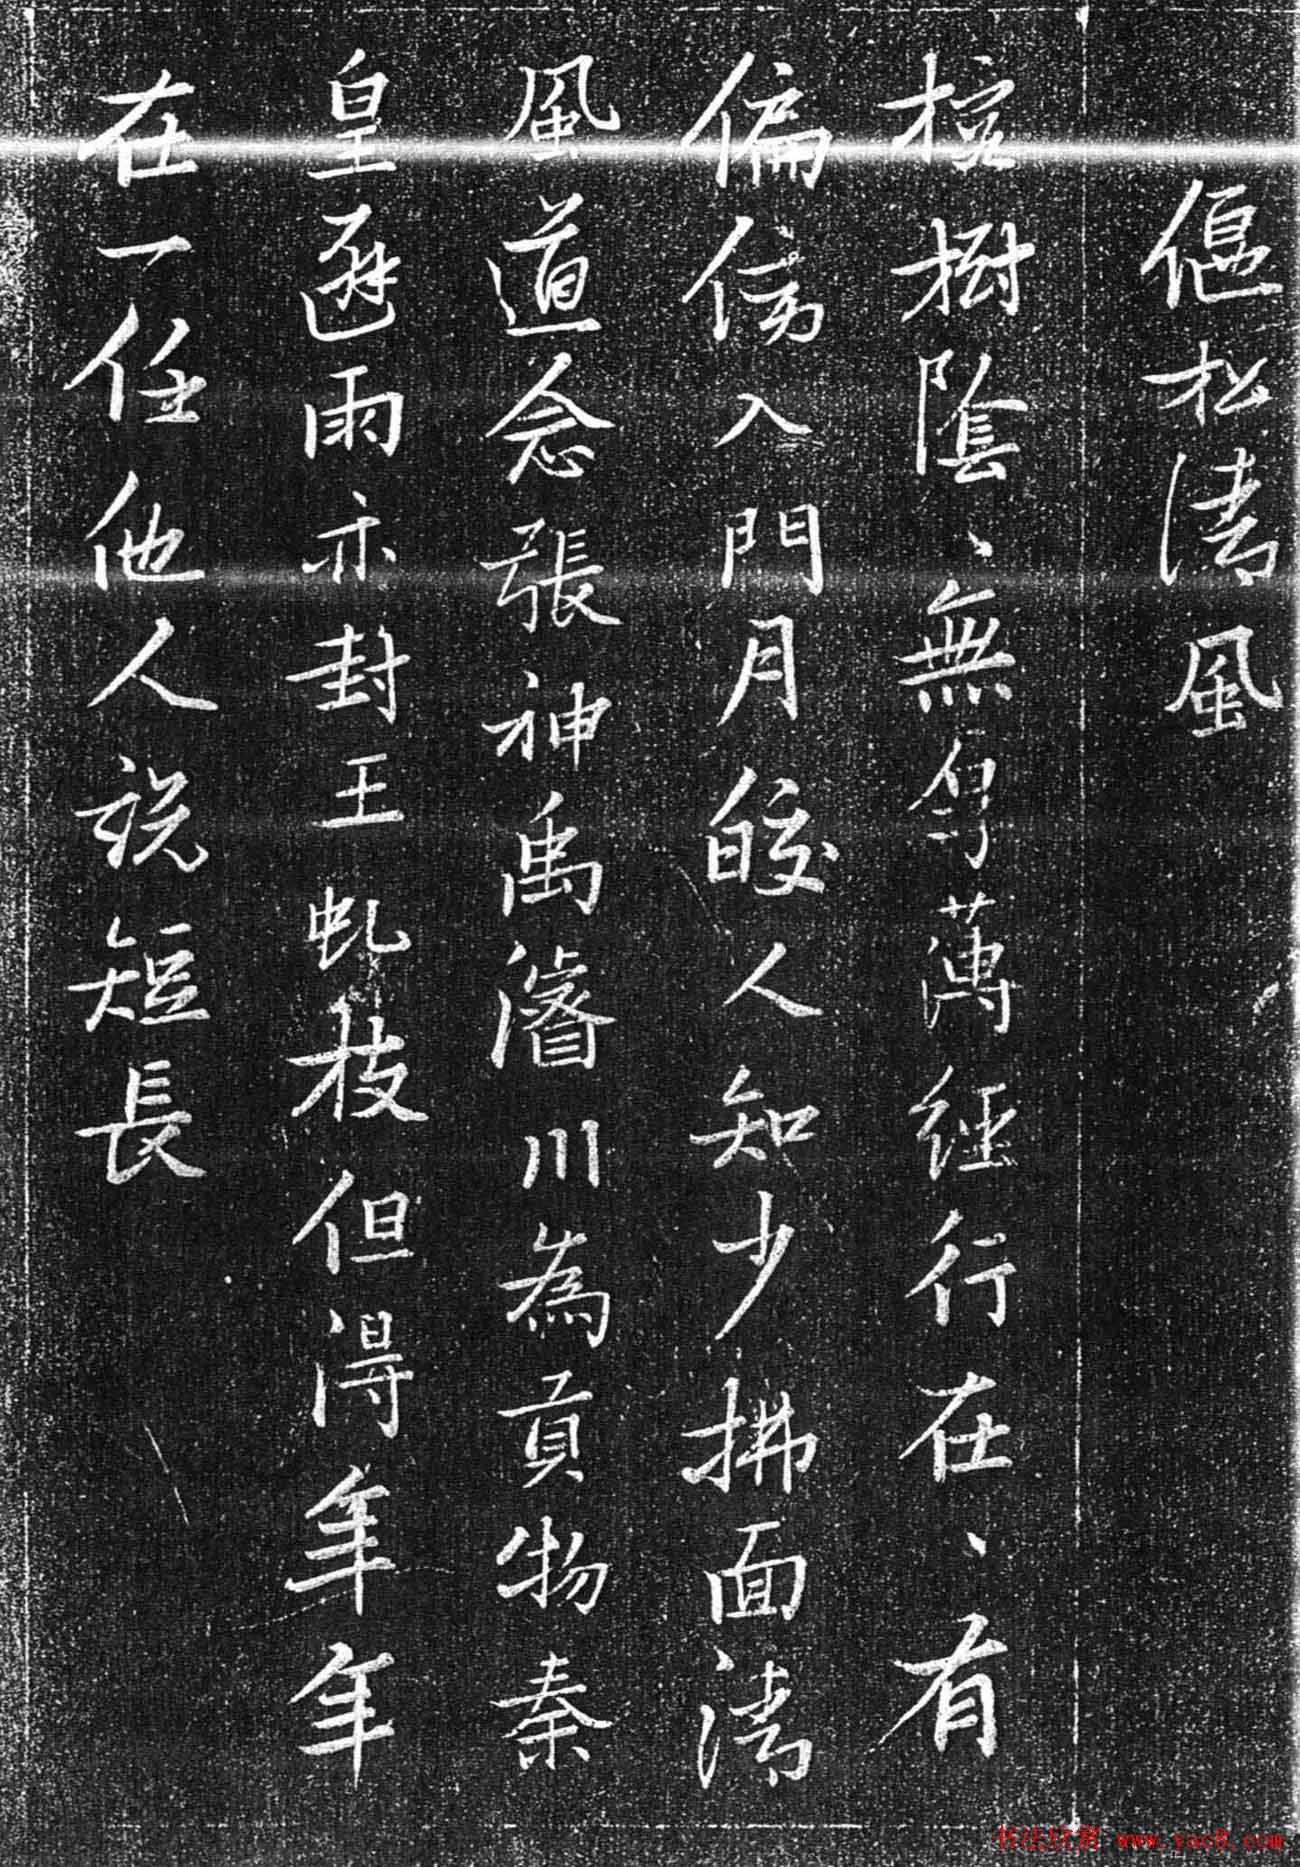 偃松清風
樹陰、無萬經行在、有
偏傍入門月皎人知少拂面清
風道念張神禹濬川為貢物秦
皇避雨亦封王虬枝但得年年
在一任他人說短長
书法欣赏 www.yac8.com